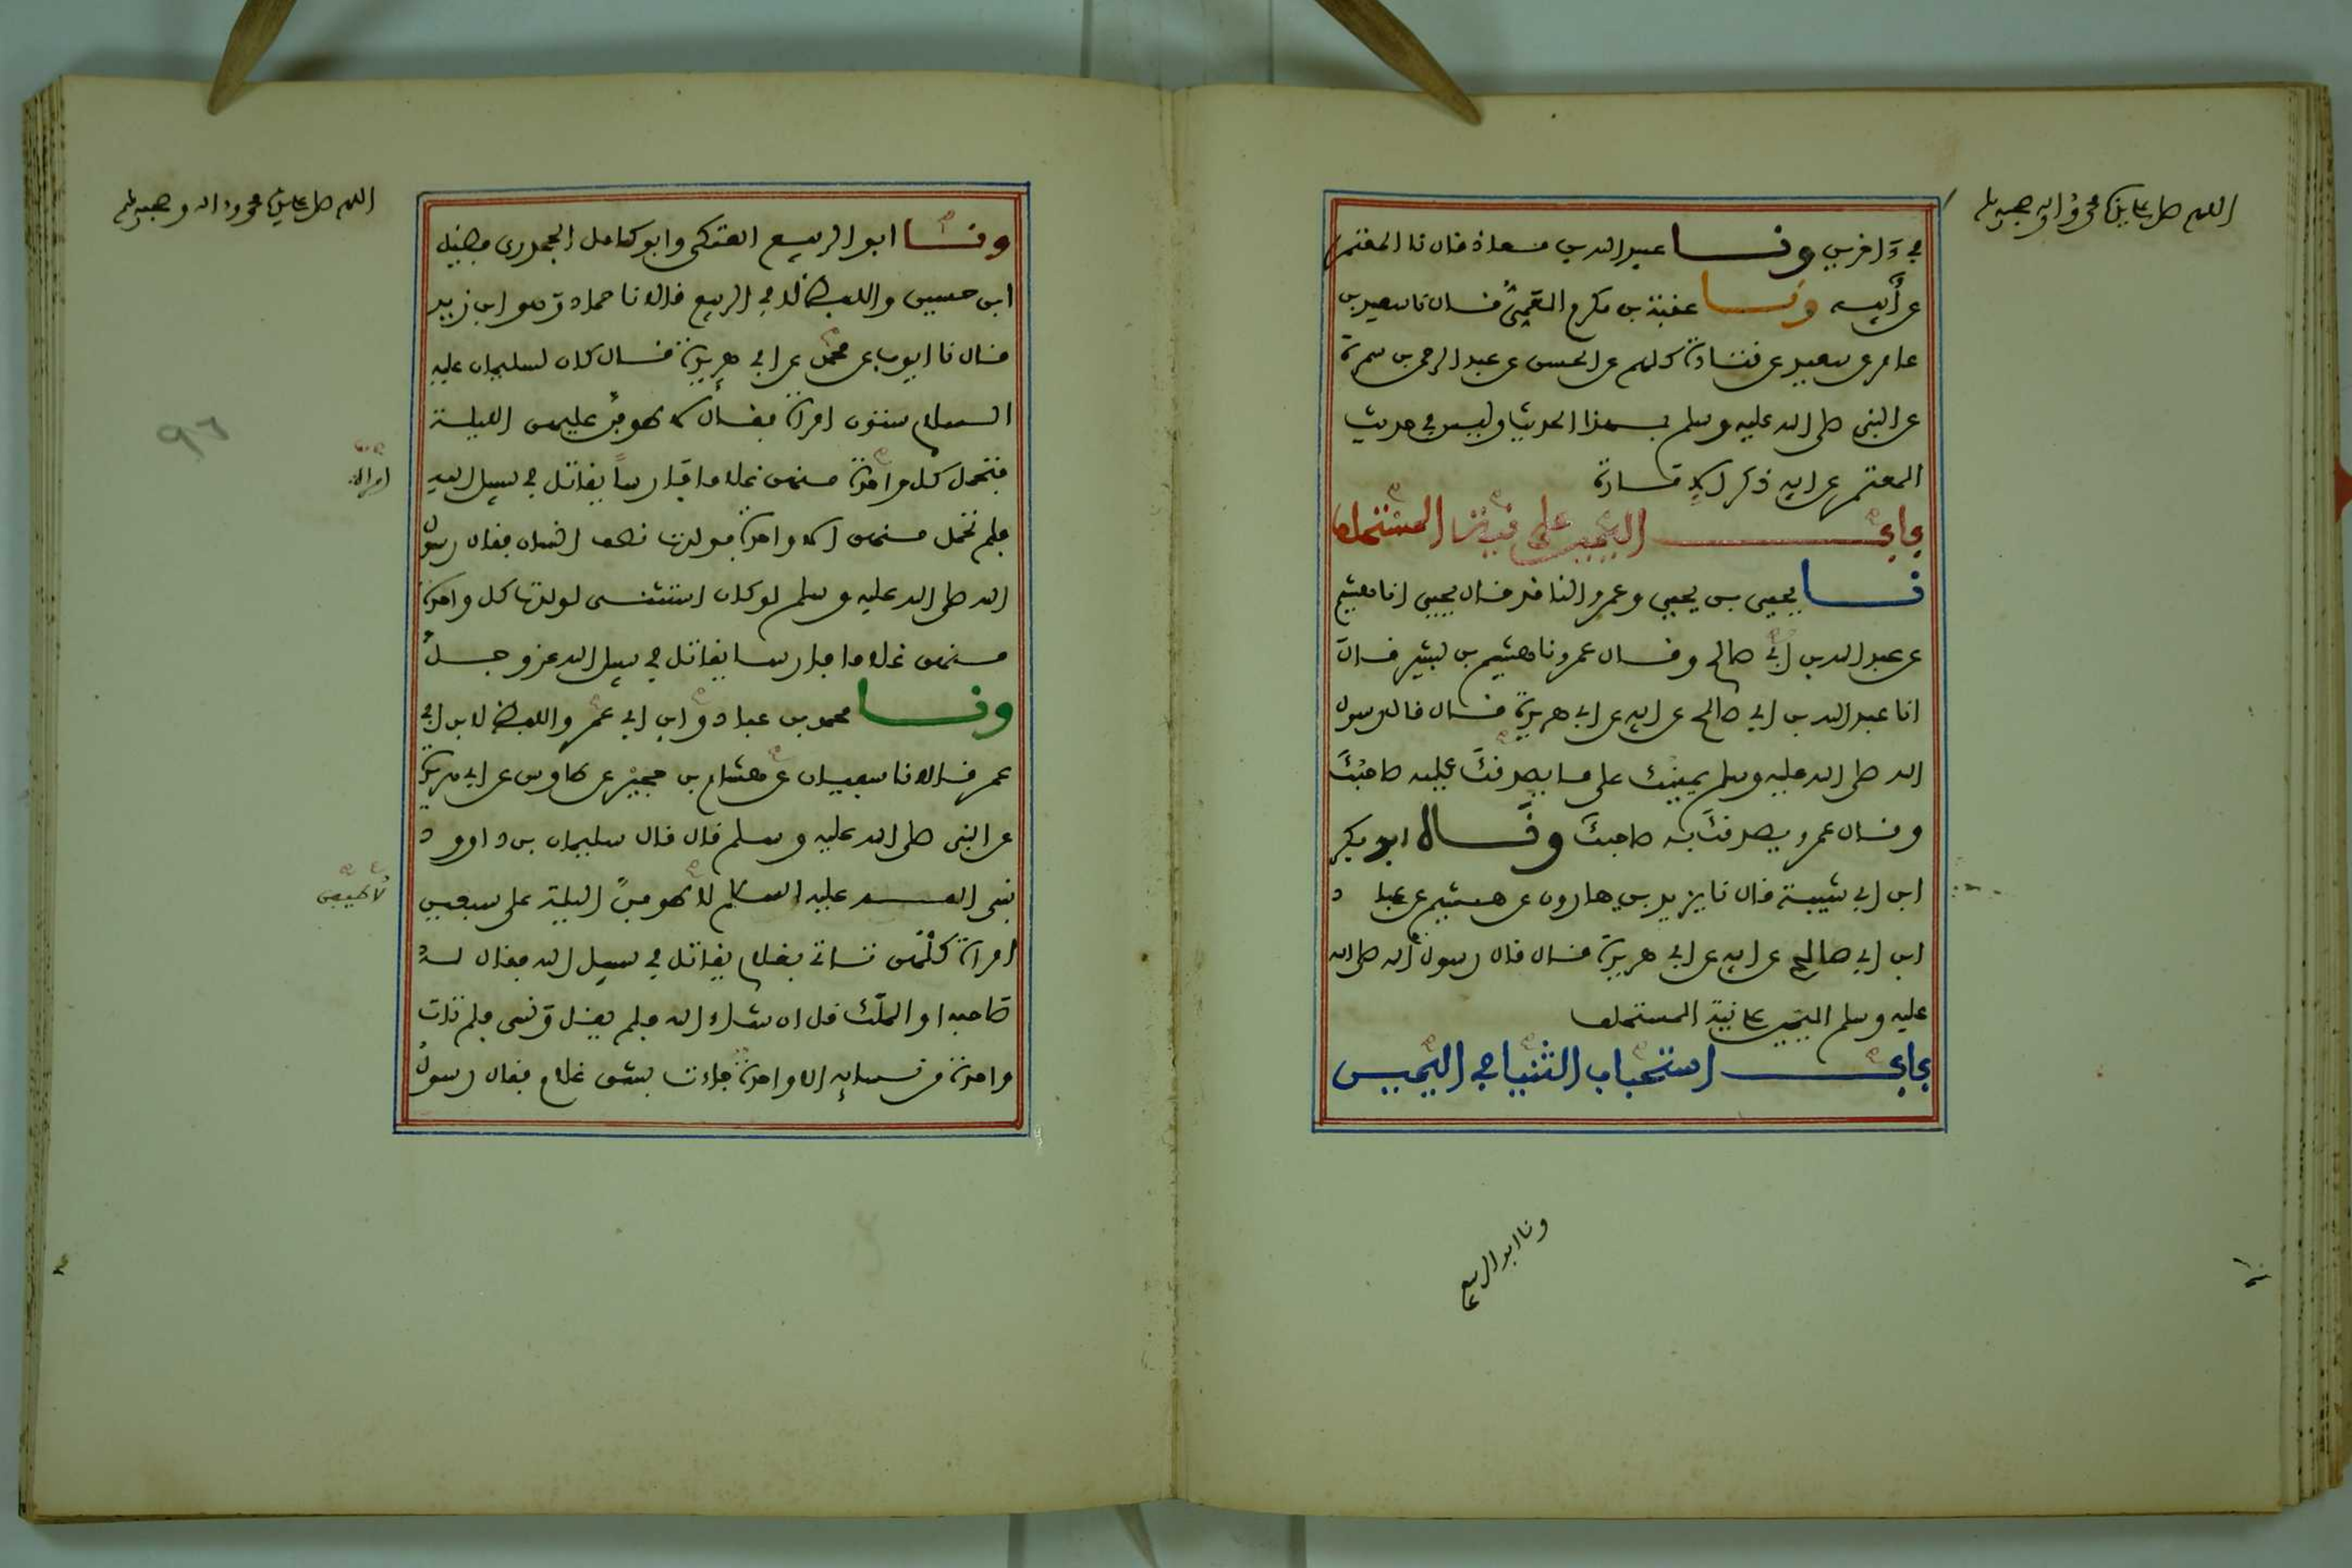 اللهم صل على سيدنا محمد وءاله وصحبه وسلم
في ءاخرين ونا عبيد الله بن معاذ قال نا المعتمر
عن أبيه ونا عقبة بن مكرم العمي قال نا سعيد بن
عامر عن سعيد عن قتادة كلهم عن الحسن عن عبد الرحمن بن سمرة
عن النبي صلى الله عليه وسلم بهذا الحديث وليس في حديث
المعتمر عن ابيه ذكر الامارة
باب اليمين على نية المستحلف
نا يحيى بن يحيى وعمرو الناقد قال يحيى انا هشيم
عن عبد الله بن ابي صالح وقال عمرو نا هشيم بن بشير قال
انا عبد الله بن ابي صالح عن ابيه عن ابي هريرة قال قال رسول
الله صلى الله عليه وسلم يمينك على ما يصدقك عليه صاحبك
وقال عمرو يصدقك به صاحبك ونا ابو بكر
ابن ابي شيبة قال نا يزيد بن هارون عن هشيم عن عباد
ابن ابي صالح عن ابيه عن ابي هريرة قال قال رسول الله صلى الله
عليه وسلم اليمين على نية المستحلف
باب استحباب الثنيا في اليمين
ونا ابو الربيع
اللهم صل على سيدنا محمد وءاله وصحبه وسلم
ونا ابو الربيع العتكي وابو كامل الجحدري فضيل
ابن حسين واللفظ لابي الربيع قالا نا حماد وهو ابن زيد
قال نا ايوب عن محمد عن ابي هريرة قال كان لسليمان عليه
السلام ستون امراة فقال لاطوفن عليهن الليلة
فتحمل كل واحدة منهن غلاما فارسا يقاتل في سبيل الله
امراة
فلم تحمل منهن الا واحدة فولدت نصف انسان فقال رسول
الله صلى الله عليه وسلم لو كان استثنى لولدت كل واحدة
منهن غلاما فارسا يقاتل في سبيل الله عز وجل
ونا محمد بن عباد وابن ابي عمر واللفظ لابن ابي
عمر قالا نا سفيان عن هشام بن حجير عن طاوس عن ابي هريرة
عن النبي صلى الله عليه وسلم قال قال سليمان بن داوود
نبي الله عليه السلام لاطوفن الليلة على سبعين
لاطيفن
امراة كلهن تاتي بغلام يقاتل في سبيل الله فقال له
صاحبه او الملك قل ان شاء الله فلم يقل ونسي فلم تات
واحدة من نسائه الا واحدة جاءت بشق غلام فقال رسول
٩٦